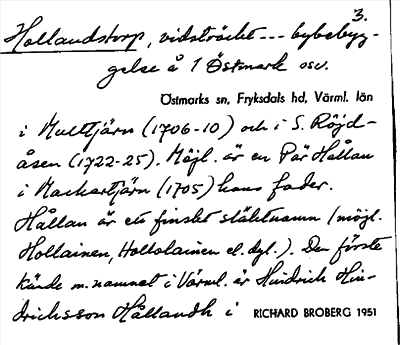 3.
Hollandstorp, vidsträckt --- bybebyg-
gelse å 1 Östmark osv.
Östmarks sn, Fryksdals hd, Värml. län
i Mulltjärn (1706-10) och i S. Röjd-
åsen (1722-25). Möjl. är en Pär Hållan
i Mackartjärn (1705) hans fader.
Hållan är ett finskt släktnamn (möjl.
Hollainen, Hollolainen el. dyl.). Den förste
kände m. namnet i Värml. är Hindrich Hin-
drichsson Hållandh i RICHARD BROBERG 1951